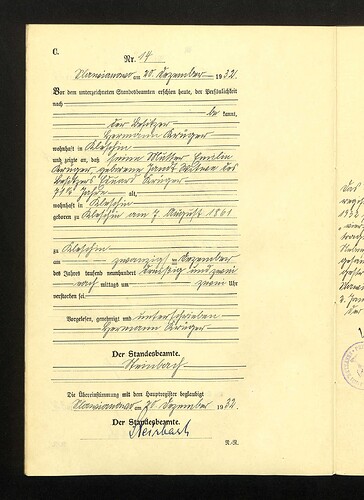 C.
Nr. 14
am 20. Dezember 1932.
Vor dem unterzeichneten Standesbeamten erschien heute, der Persönlichkeit
nach
be kannt,
der Besitzer
Hermann Krüger
wohnhaft in Kleschin
und zeigte an, daß seine Mutter Emilie
Krüger, geborene Witwe des
Besitzers Eduard Krüger
Jahre alt,
wohnhaft in Kleschin
geboren zu Kleschin am 7. August 1861
zu Kleschin
am zwanzig ten Dezember
des Jahres tausend neunhundert dreißig und zwei
nach mittags um zwei Uhr
verstorben sei.
Vorgelesen, genehmigt und unterschrieben
Hermann Krüger
Der Standesbeamte.
Steinbach
Die Übereinstimmung mit dem Hauptregister beglaubigt
am 20. Dezember 1932.
Der Standesbeamte.
Steinbach
N.-R.